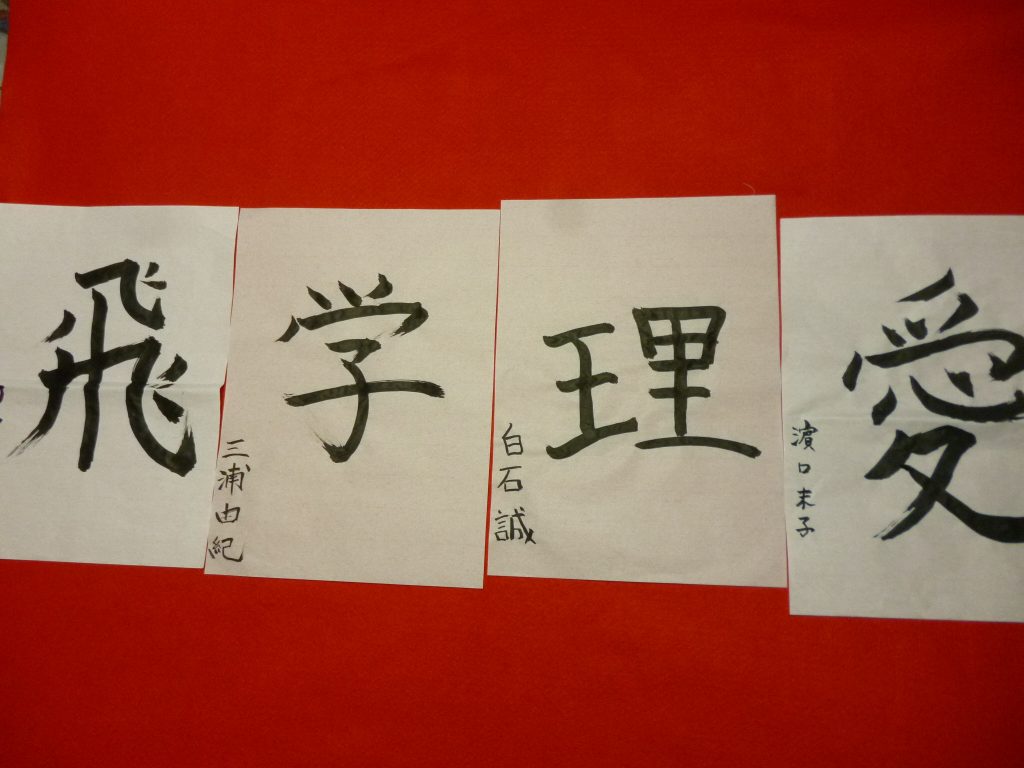 飛
学
三浦由紀
理
白石誠
愛
濵口末子